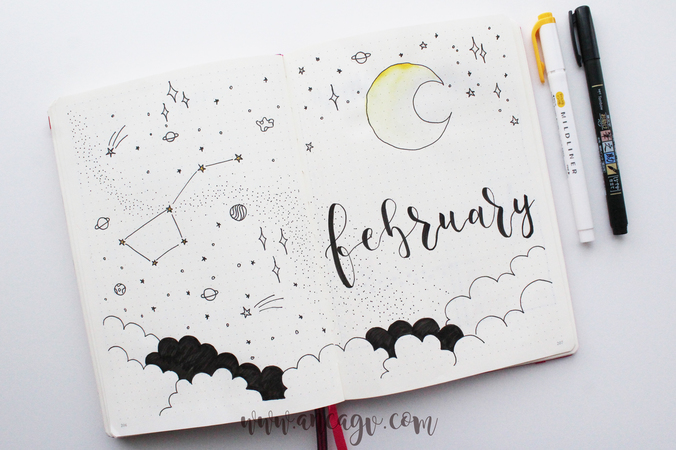 february
MILDLINER
www.ancagv.com